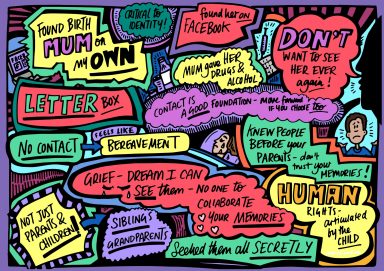 FOUND BIRTH
MUM on
my OWN
CRITICAL TO
IDENTITY!
found her on
FACEBOOK
DON'T
WANT TO SEE
HER EVER
again!
MUM gave HER
DRUGS &
ALCOHOL
LETTER BOX
CONTACT IS
A GOOD FOUNDATION - MOVE forward
IF YOU CHOOSE too
NO CONTACT
FEELS LIKE
BEREAVEMENT
KNEW PEOPLE
BEFORE your
PARENTS - don't
trust your
MEMORIES!
GRIEF - DREAM I CAN
SEE them - NO ONE TO
COLLABORATE
YOUR MEMORIES
HUMAN
RIGHTS -
articulated
by the
CHILD
NOT JUST
PARENTS &
CHILDREN!
SIBLINGS
GRANDPARENTS
Seemed them all SECRETLY